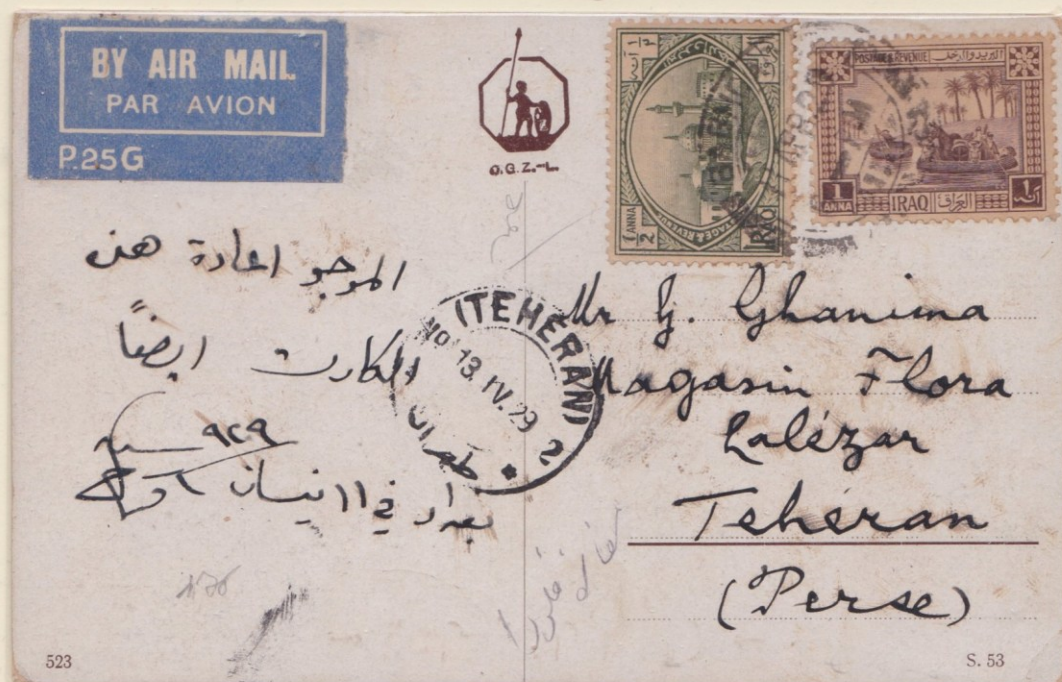 BY AIR MAIL
PAR AVION
P.25G
O.G.Z.-L.
1/2 ANNA
POSTAGE & REVENUE
IRAQ
POSTAGE & REVENUE
البريد والدخل
1 ANNA
IRAQ
العراق
الموجو اعادة هذه
الكارت ايضاً
بغداد في ١١ نيسان
٩٢٩
(TEHERAN) 2
13.IV.29
طهران
Mr G. Ghanima
Magasin Flora
Lalézar
Teheran
(Perse)
523
S. 53